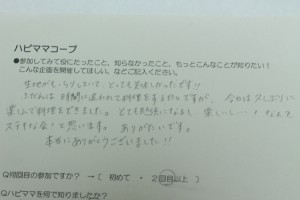 ハピママコープ
●参加してみて役にたったこと、知らなかったこと、もっとこんなことが知りたい！
こんな企画を開催してほしい。などご記入ください。
生地がもっちりしていて、とっても美味しかったです!!
ふだんは時間に追われて料理をするのですが、今日は久しぶりに
楽しんで料理をできました。とても熱心になると 楽しいー!! なんて
ステキな会と思います。ありがたいです。
本当にありがとうございました!!
Q.何回目の参加ですか？ →（ 初めて ・ 2回目以上 ）
Qハピママを何で知りましたか？